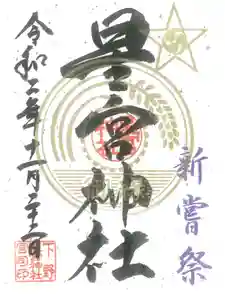 新嘗祭
星宮神社
令和二年十一月二十三日
下野